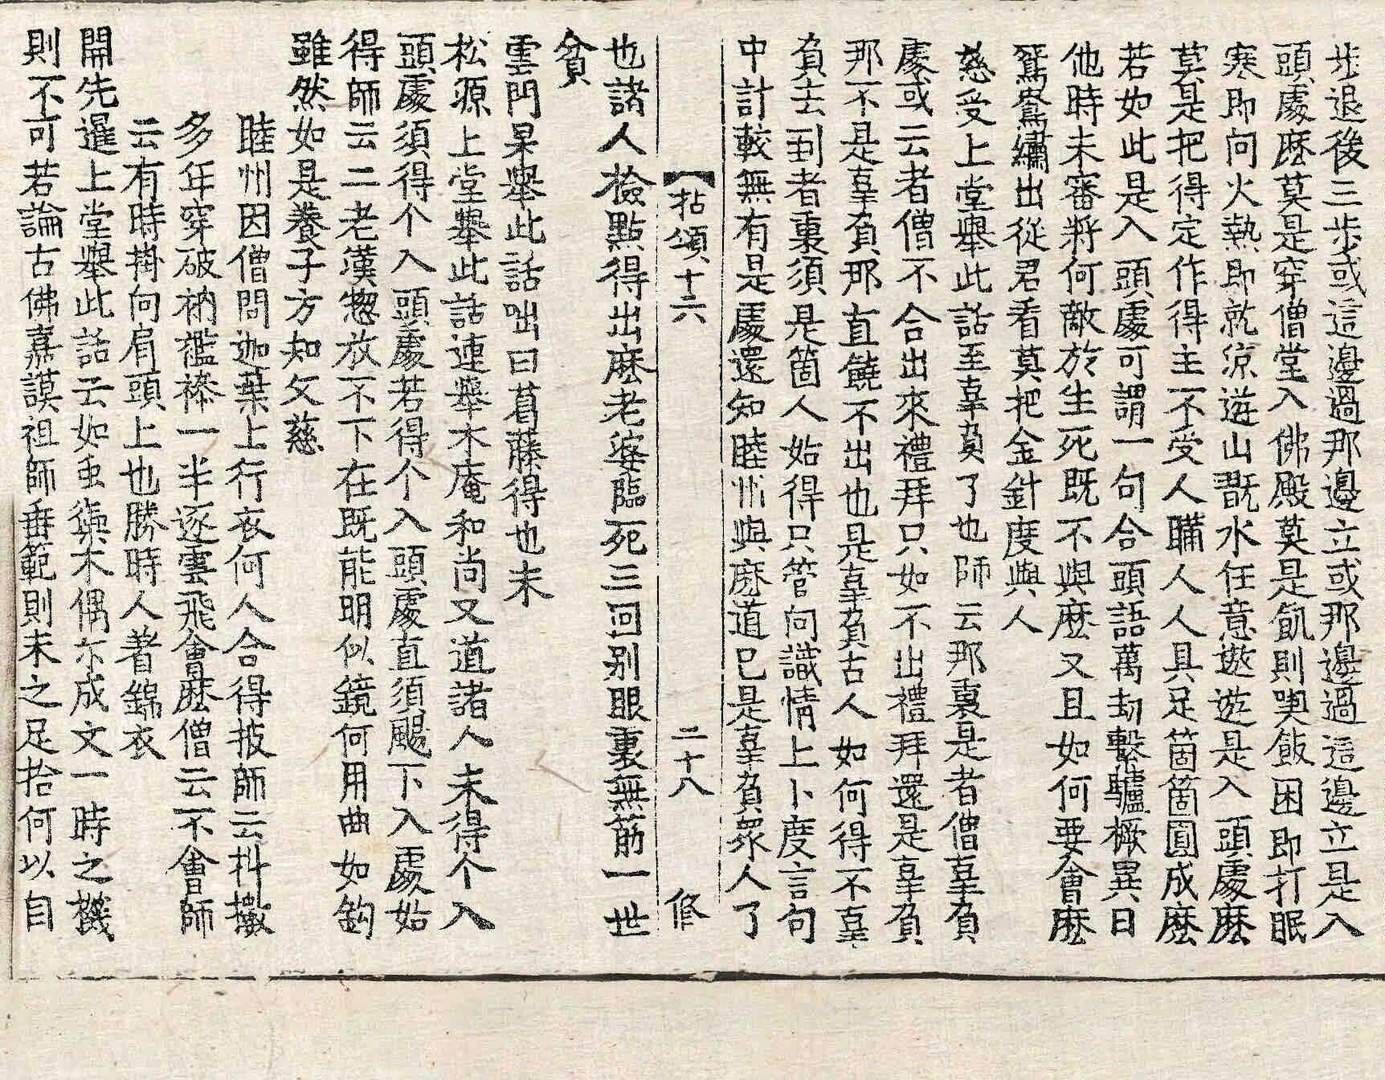 步退後三步或這邊過那邊立或那邊過這邊立是入
頭處麽莫是穿僧堂入佛殿莫是飢則喫飯困即打眠
寒即向火熱即就凉遊山翫水任意遨遊是入頭處麽
莫是把得定作得主不受人瞞人人具足箇箇圓成麽
若如此是入頭處可謂一句合頭語萬劫繫驢橛異日
他時未審將何敵於生死既不與麽又且如何要會麽
鴛鴦繡出從君看莫把金針度與人
慈受上堂舉此話至辜負了也師云那裏是者僧辜負
處或云者僧不合出來禮拜只如不出禮拜還是辜負
那不是辜負那直饒不出也是辜負古人如何得不辜
負去到者裏須是箇人始得只管向識情上卜度言句
中計較無有是處還知睦州與麽道已是辜負衆人了
【拈頌十六 二十八 修
也諸人撿點得出麽老婆臨死三回别眼裏無筋一世
貧
雲門杲舉此話咄曰葛藤得也未
松源上堂舉此話連舉木庵和尚又道諸人未得个入
頭處須得个入頭處若得个入頭處直須颺下入處始
得師云二老漢惣放不下在既能明似鏡何用曲如鈎
雖然如是養子方知父慈
睦州因僧問迦葉上行衣何人合得披師云抖擻
多年穿破衲襤襂一半逐雲飛會麽僧云不會師
云有時掛向肩頭上也勝時人著錦衣
開先暹上堂舉此話云如虫蝕木偶尒成文一時之機
則不可若論古佛嘉謨祖師垂範則未之足拾何以自